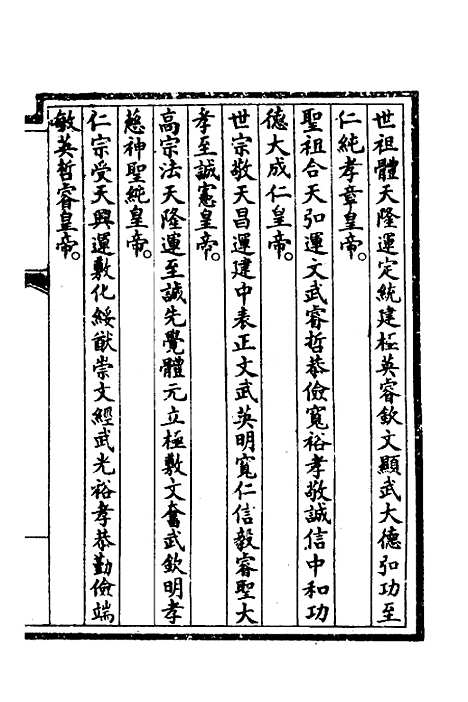 世祖體天隆運定統建極英睿欽文顯武大德弘功至
仁純孝章皇帝。
聖祖合天弘運文武睿哲恭儉寬裕孝敬誠信中和功
德大成仁皇帝。
世宗敬天昌運建中表正文武英明寬仁信毅睿聖大
孝至誠憲皇帝。
高宗法天隆運至誠先覺體元立極敷文奮武欽明孝
慈神聖純皇帝。
仁宗受天興運敷化綏猷崇文經武光裕孝恭勤儉端
敏英哲睿皇帝。